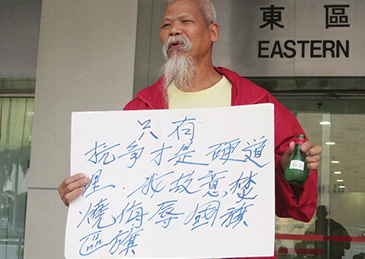 東區
EASTERN
只有
抗争才是硬道
理，我故意焚
燒侮辱國旗
區旗